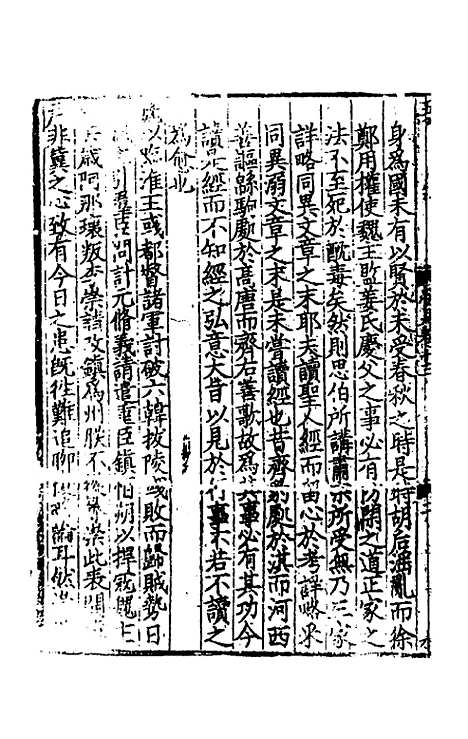 身爲國未有以賢於未受春秋之時是時胡后滛亂而徐
鄭用權使魏主監姜氏慶父之事必有防閑之道正家之
法不至死於酖毒矣然則思伯所講肅宗所受無乃三家
詳略同異文章之末耶夫讀聖人經而留心於考詳略采
同異溺文章之末是未嘗讀經也昔齊豹處於淇而河西
善謳緜駒處於高唐而齊右善歌故爲其事必有其功今
讀是經而不知經之弘意大旨以見於行事不若不讀之
爲愈也
以臨淮王彧都督諸軍討破六韓拔陵彧敗而歸賊勢日
引羣臣問計元脩義請遣重臣鎮恒朔以捍寇魏主
歲阿那瓌叛李崇請改鎮爲州朕不 崇此表開
非冀之心致有今日之患旣往難追聊 論耳然